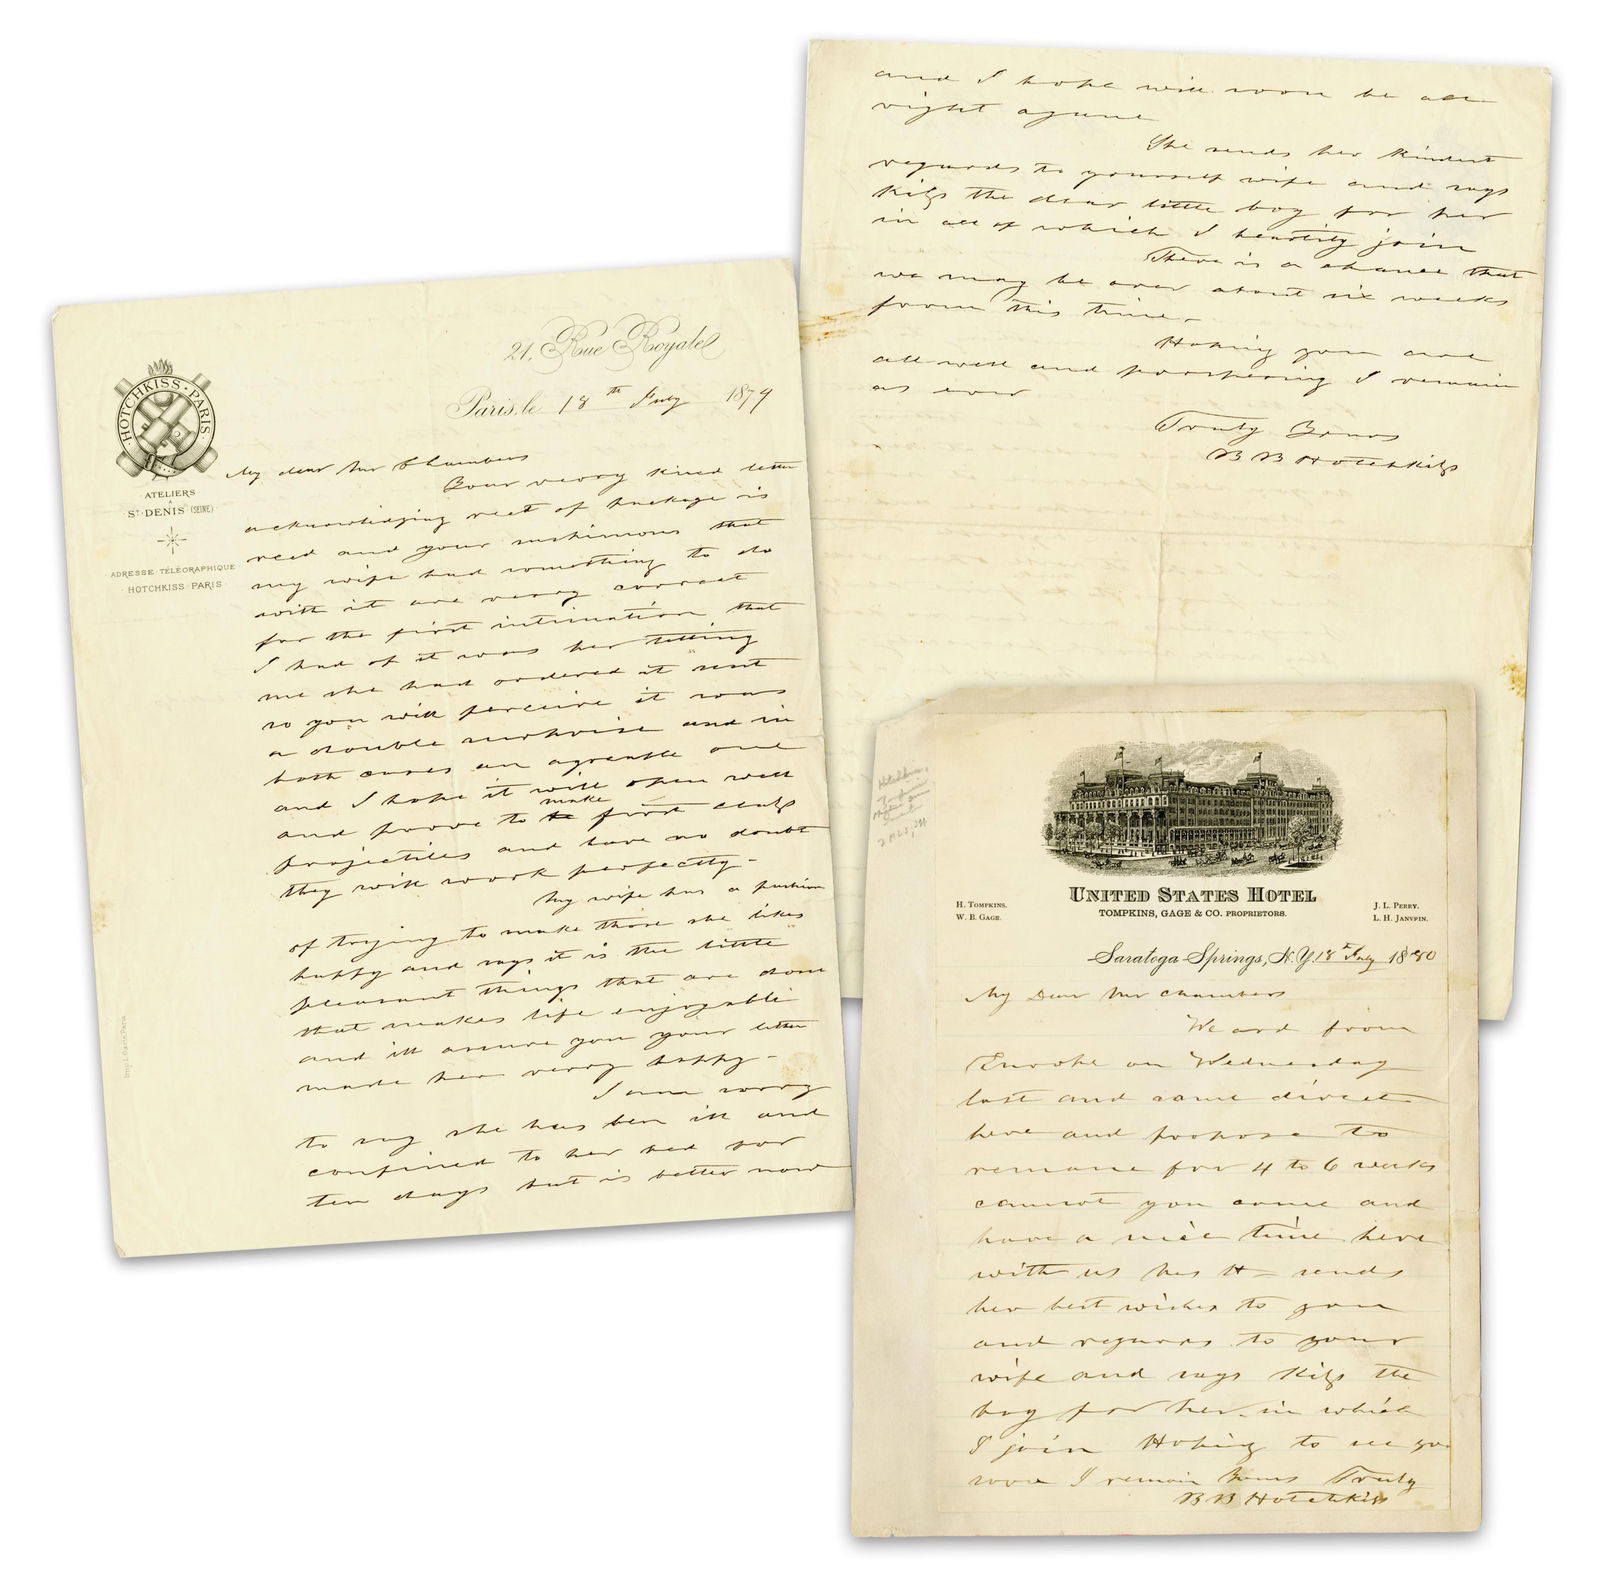 21, Rue Royale
Paris, le 18th July 1879
HOTCHKISS · PARIS
ATELIERS
A
ST DENIS (SEINE)
ADRESSE TÉLÉGRAPHIQUE
HOTCHKISS-PARIS
My dear Mr Chambers
Your verry kind letter
acknowledging rect of package is
recd and your surmisous that
my wife had something to do
with it are verry correct
for the first intimation that
I had of it was her telling
me she had ordered it "sent"
so you will perceive it was
a double surprise and in
both cases an agreable one
and I hope it will open well
and prove to make first class
projectiles and have no doubt
they will work perfectly-
My wife has a
of trying to make those she likes
happy and says it is the "little
pleasant things" that are done
that makes life enjoyable
and ill assure you your letter
made her verry happy-
I am sorry
to say she has ben ill and
confined to her bed for
ten days but is better now
Paris
and I hope will soon be all
right again
She sends her kindest
regards to yourself wife and says
kiss the dear little boy for her
in all of which I heartily join
There is a chance that
we may be over about six weeks
from this time-
Hoping you are
all well and prospering I remain
as ever
Truly Yours
B B Hotchkiss
UNITED STATES HOTEL
TOMPKINS, GAGE & CO. PROPRIETORS.
H. TOMPKINS.
W. B. GAGE.
J. L. PERRY.
L. H. JANVRIN.
Saratoga Springs, N.Y. 18th July 1880
My Dear Mr Chambers
We ard from
Europe on Wednesday
last and came direct
here and propose to
remane for 4 to 6 weeks
cannot you come and
have a nice time here
with us Mrs H- sends
her best wishes to you
and regards to your
wife and says kiss the
boy for her in which
I join Hoping to see you
soon I remain Yours Truly
B B Hotchkiss